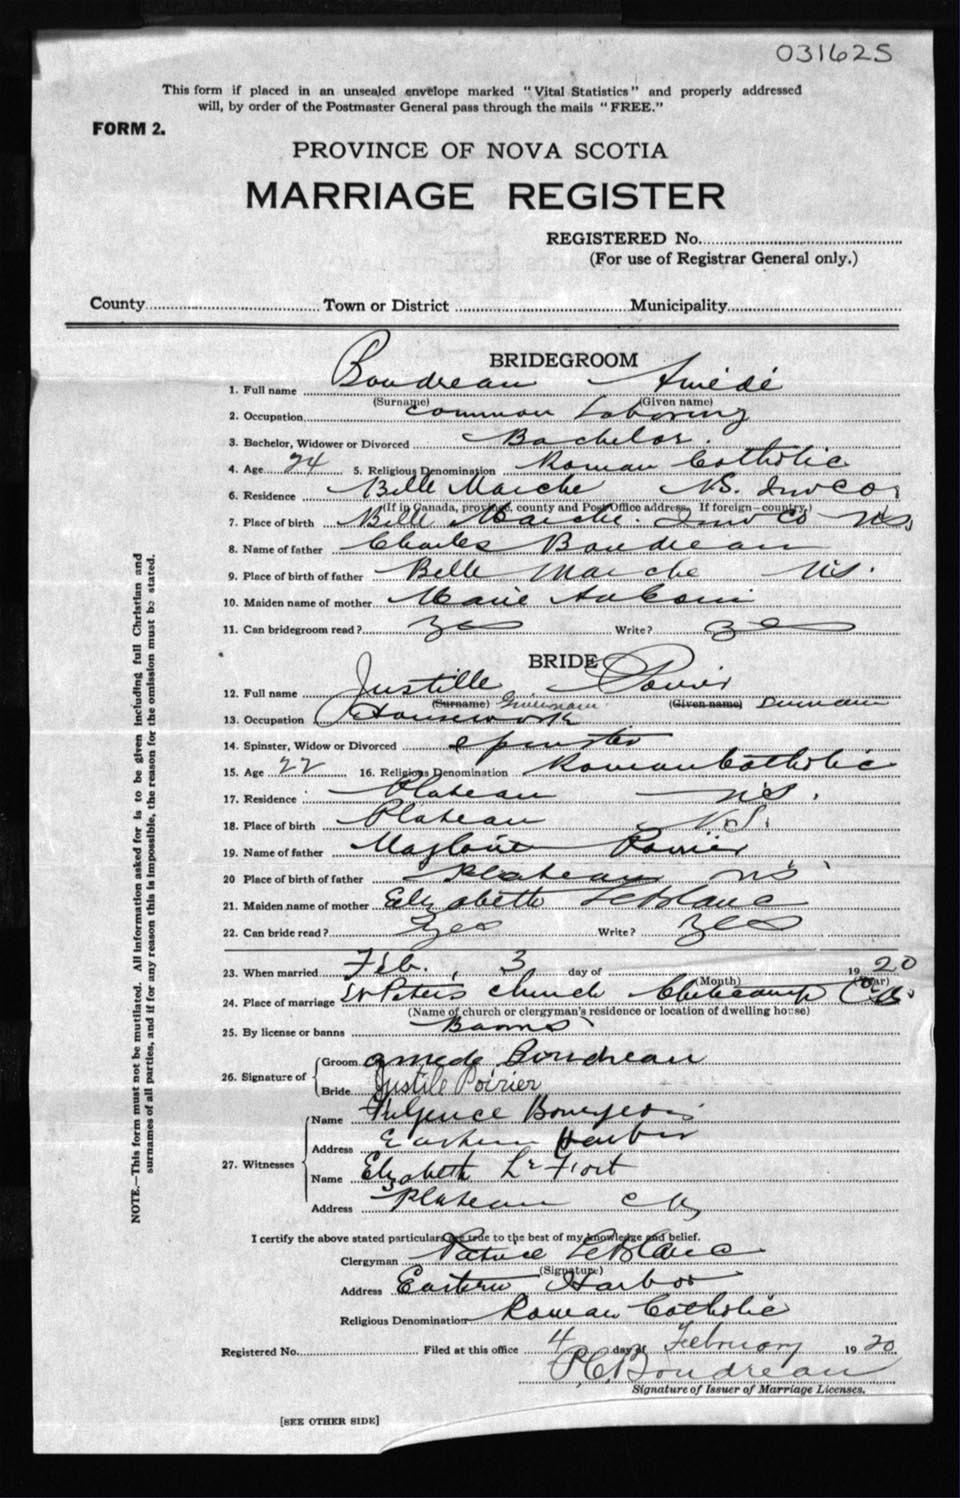 031625
This form if placed in an unsealed envelope marked "Vital Statistics" and properly addressed
will, by order of the Postmaster General pass through the mails "FREE."
FORM 2.
PROVINCE OF NOVA SCOTIA
MARRIAGE REGISTER
REGISTERED No.
(For use of Registrar General only.)
County Town or District Municipality
BRIDEGROOM
1. Full name Boudreau Amédé
(Surname) (Given name)
2. Occupation common Laboring
3. Bachelor, Widower or Divorced Bachelor.
4. Age 24 5. Religious Denomination Roman Catholic
6. Residence Belle Marche N.S. Inv Co,
(If in Canada, province, county and Post Office address. If foreign—country.)
7. Place of birth Belle Marche. Inv Co N.S,
8. Name of father Charles Boudreau
9. Place of birth of father Belle Marche N.S.
10. Maiden name of mother Marie
11. Can bridegroom read? Yes Write? Yes
BRIDE
12. Full name Justille Poirier
(Surname) (Given name)
13. Occupation Housework
14. Spinster, Widow or Divorced Spinster
15. Age 22 16. Religious Denomination Roman Catholic
17. Residence Plateau N.S.
18. Place of birth Plateau N.S.
19. Name of father Magloire Poirier
20 Place of birth of father Plateau N.S.
21. Maiden name of mother Elizabeth LeBlanc
22. Can bride read? Yes Write? Yes
23. When married Feb., 3 day of 1920
(Month) (Year)
24. Place of marriage St Peters church Cheticamp C.B.
(Name of church or clergyman's residence or location of dwelling house)
25. By license or banns Banns
26. Signature of Groom amede Boudreau
Bride Justile Poirier
27. Witnesses Name Fulgence Bourgeois
Address Eastern Harbor
Name Elizabeth LeFort
Address Plateau C B
I certify the above stated particulars are true to the best of my knowledge and belief.
Clergyman Patrice LeBlanc
(Signature)
Address Eastern Harbor
Religious Denomination Roman Catholic
Registered No. Filed at this office 4 day of February 1920
P.C. Boudreau
Signature of Issuer of Marriage Licenses.
[SEE OTHER SIDE]
NOTE.—This form must not be mutilated. All information asked for is to be given including full Christian and
surnames of all parties, and if for any reason this is impossible, the reason for the omission must be stated.